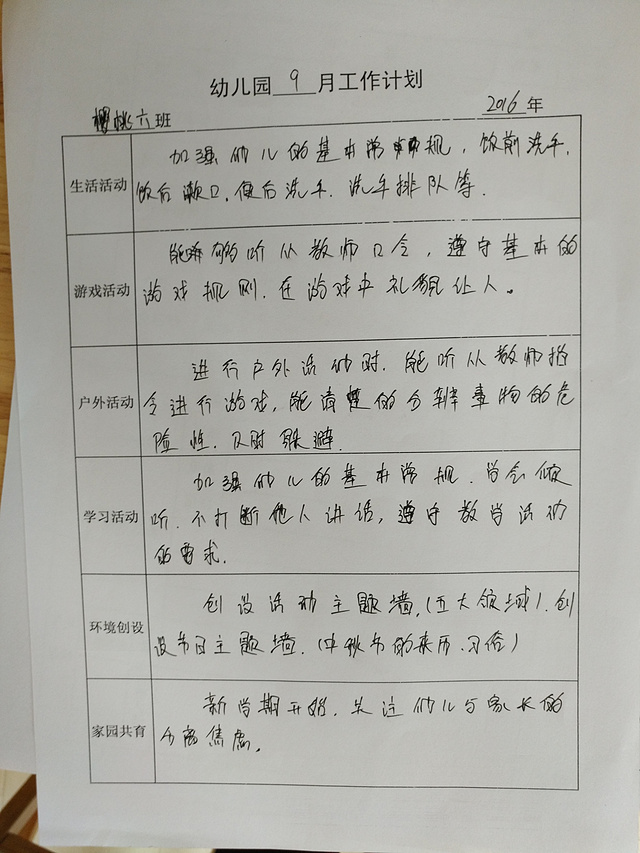 幼儿园 9 月工作计划
樱桃六班
2016 年
生活活动
加强幼儿的基本常规，饭前洗手，
饭后漱口，便后洗手，洗手排队等．
游戏活动
能够听从教师口令，遵守基本的
游戏规则．在游戏中礼貌让人。
户外活动
进行户外活动时．能听从教师指
令进行游戏，能清楚的分辨事物的危
险性．及时躲避．
学习活动
加强幼儿的基本常规．学会倾
听．不打断他人讲话，遵守教学活动
的要求．
环境创设
创设活动主题墙，（五大领域）．创
设节日主题墙．（中秋节的来历．习俗）
家园共育
新学期开始．关注幼儿与家长的
分离焦虑。